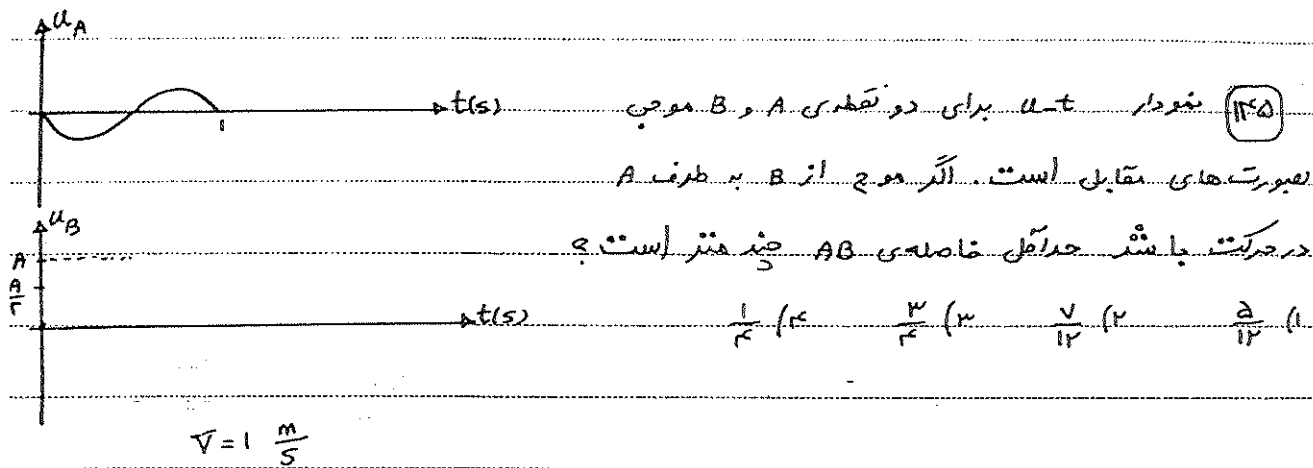 u_A
t(s)
۱
۱۴۵ نمودار u-t برای دو نقطه‌ی A و B موجی
بصورت‌های مقابل است. اگر موج از B به طرف A
u_B
در حرکت باشد حداقل فاصله‌ی AB چند متر است؟
A
A/۲
t(s)
۱) ۵/۱۲ ۲) ۷/۱۲ ۳) ۳/۴ ۴) ۱/۴
V = 1 m/s